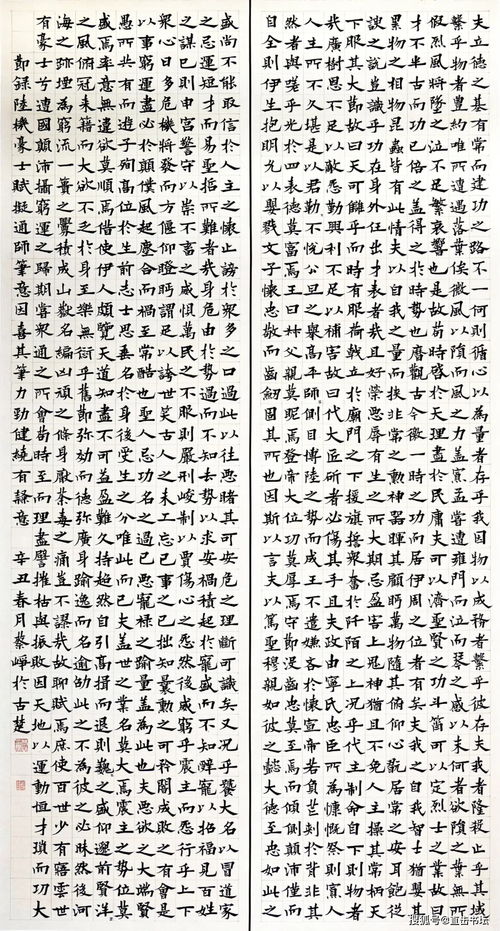 夫立德之基有常而建功之路不一何則循心以為量者存乎我因物以成務者繫乎彼存夫我者隆殺止乎其域
繫乎物者豐約唯所遭遇落葉俟微風以隕而風之力蓋寡孟嘗遭雍門而泣而琴之感以末何者欲隕之葉無所
假烈風將墜之泣不足繁哀響也是故苟時啓於天理盡於民庸夫可以濟聖賢之功斗筲可以定烈士之業故曰
才不半古而功已倍之蓋得之於時勢也歷觀古今徼一時之功而居伊周之位者有矣夫我之自我智士猶嬰其
累物之相物昆蟲皆有此情夫以自我之量而挾非常之勳神器暉其顧眄萬物隨其俯仰心翫居常之安耳飽從
諛之說豈識乎功在身外任出才表者哉且好榮惡辱有生之所大期忌盈害上鬼神猶且不免人主操其常柄天
下服其大節故曰天可讎乎而時有袨服荷戟立於廟門之下援旗誓眾奮於阡陌之上況乎代主制命自下財物者
哉廣樹恩不足以敵怨勤興利不足以補害故曰代大匠斲者必傷其手且夫政由甯氏忠臣所為慷慨祭則寡人
人主所不久堪是以君奭鞅鞅不悅公旦之舉高平師師側目博陸之勢而成王不遣嫌吝於懷宣帝若負芒刺於背非其
然者與嗟乎光於四表德莫富焉王曰叔父親莫昵焉登帝大位功莫厚焉守節沒齒忠莫至焉而傾側顛沛僅而
自全則伊生抱明允以嬰戮文子懷忠敬而齒劍固其所也因斯以言夫以篤聖穆親如彼之懿大德至忠如此之
盛尚不能取信於人主之懷止謗於眾多之口過此以往惡睹其可安危之理斷可識矣又況乎饕大名以冒道家
之忌運短才而易聖哲所難者哉身危由於勢過而不知去勢以求安禍積起於寵盛而不知辭寵以招福見百姓
之謀己則申宮警守以崇不畜之威懼萬民之不服則嚴刑峻制以賈傷心之怨然後威窮乎震主而怨行乎上下
眾心日危機將發而方偃仰瞪眄謂足以誇世笑古人之未工忘己事之已拙知曩勳之可矜闇成敗之有會是
以事窮運盡必於顛僕風起塵合而禍至常酷也聖人忌功名之過己惡寵祿之踰量蓋為此也夫惡欲之大端賢
愚所共有而遊子殉高位於生前志士思垂名於身後受生之分唯此而已夫蓋世之業名莫大焉震主之勢位莫
盛焉率意無違欲莫順焉借使伊人頗覽天道知盡不可益盈難久持超然自引高揖而退則巍巍之盛仰邈前賢洋洋
之風俯冠來籍而大欲不乏於身至樂無愆乎舊節彌效而德彌廣身逾逸而名逾劭此之不為彼之必昧然後河
海之跡堙為窮流一簣之釁積成山嶽名編凶頑之條身厭荼毒之痛豈不謬哉故聊賦焉庶使百世少有寤云世
有豪士兮遭國顛沛攝窮運之歸期當眾通之所會苟時至而理盡譬摧枯與振敗因天地以運動恒才瑣而功大
節錄陸機豪士賦擬通師筆意因喜其筆力勁健繞有趣意 辛丑春月蔡崢於古楚
搜狐号@直击书坛